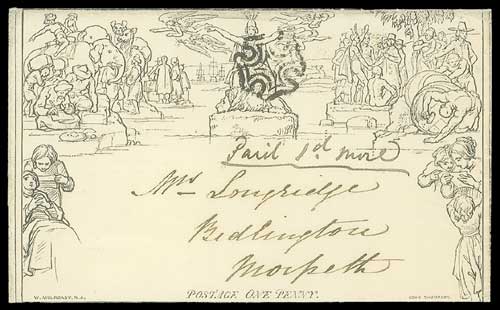 Paid 1d More
Mrs Longridge
Bedlington
Morpeth
W. MULREADY. R.A.
POSTAGE ONE PENNY.
JOHN THOMPSON.